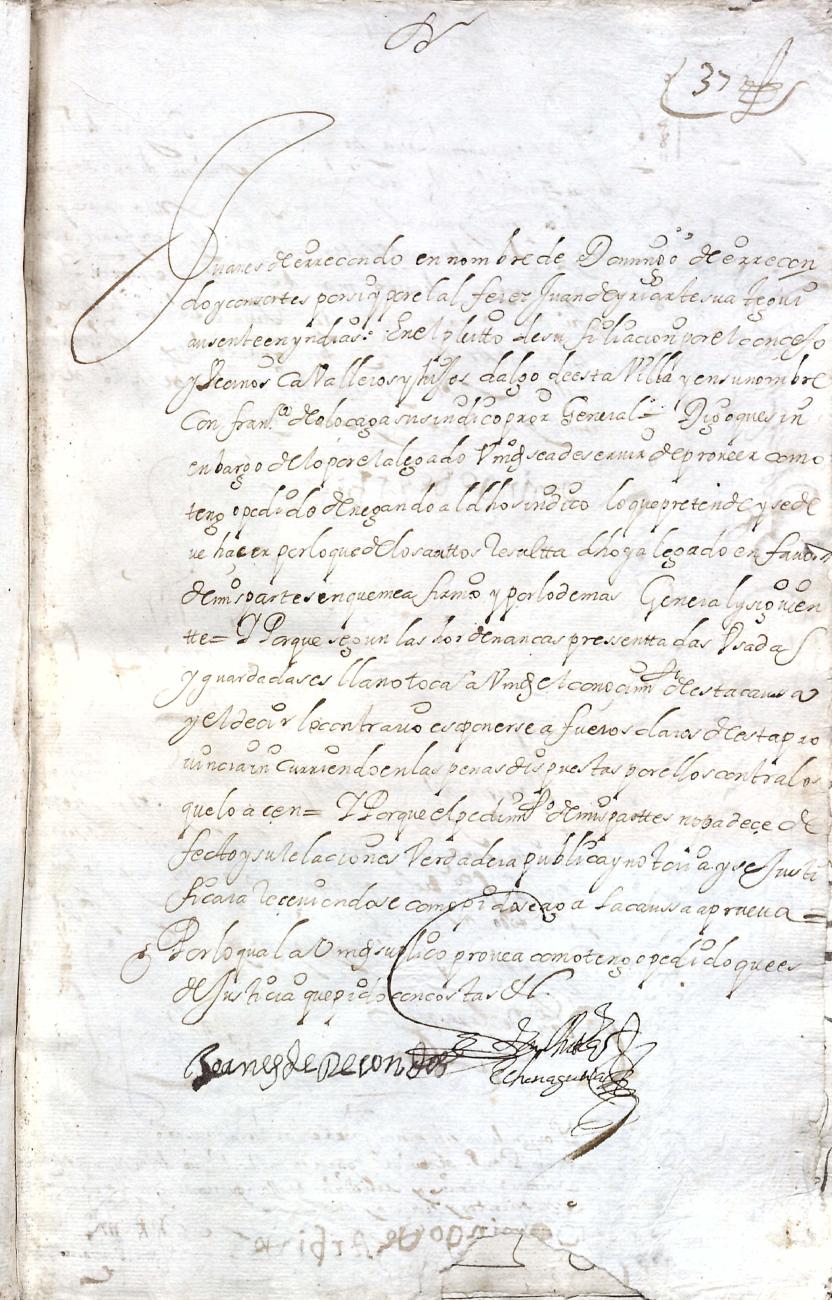 37
Juanes de Errecondo en nombre de Domingo de Errecon
do y consortes por si y por el alferez Juan de yriarte su
ausente en yndias. En el pleitto de su filiacion por el concejo
y Vecinos Cavalleros y hijos dalgo de esta Villa y en su nombre
Con fran.co de olocaga su sindico pror General = Digo que sin
enbargo de lo por el alegado Vmd sea de servir de proveer como
tengo pedido denegando al dho sindico lo que pretende y se de
ve hacer por lo que de los auttos Resultta dho y alegado en favor
de mis partes en que me afirmo y por lo demas General y siguien
tte = Y Porque segun las hordenancas pressenttadas Vsadas
y guardadas es llano toca a Vmd el conocim.to de esta caussa
y el decir lo contrario es ponerse a fueros claros de esta pro
vincia incurriendo en las penas dispuestas por ellos contra los
que lo acen = Y Porque el pedim.to de mis parttes no padece de
fecto y su Relacion es Verdadera publica y notoria y se Justi
ficara Receviendose como pido se aga la caussa a prueva =
Por lo qual a Vmd suplico provea como tengo pedido que es
de Justicia que pido con costas &.
Joanes de Recondo
Echenagusia
Domingo de Arbi